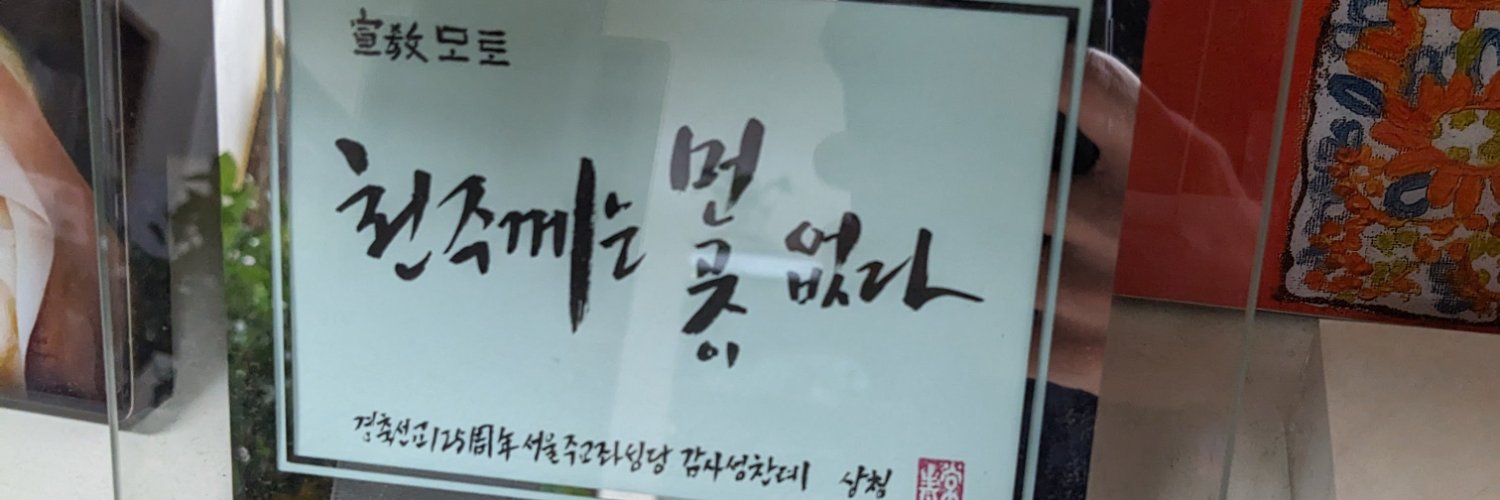 宣敎 모토
천주께는 먼 곳이 없다
경축선교125周年 서울주교좌성당 감사성찬례 상첨